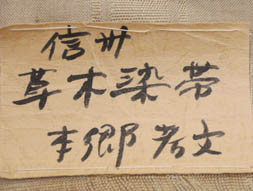 信州
草木染帯
本郷孝文